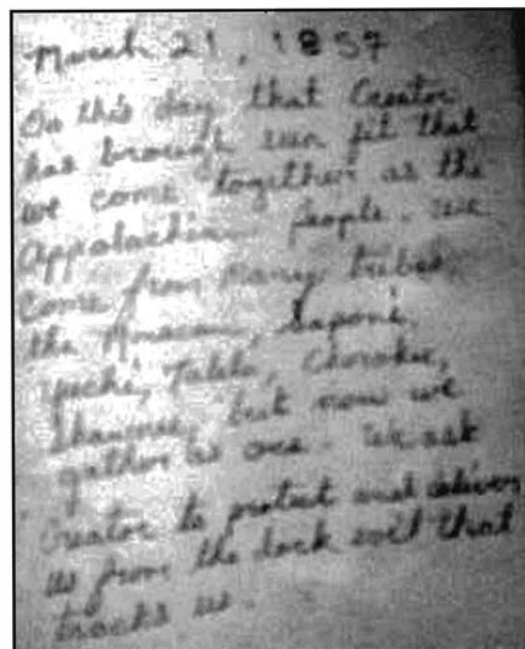 March 21, 1857
On this day that Creator
has brough sun fit that
we come together as the
Appalachian people. We
come from many tribes,
the saponi,
yuchi, Cherokee,
shawnee, but now we
gather as one. We ask
Creator to protect and deliver
us from the dark evil that
tracks us.